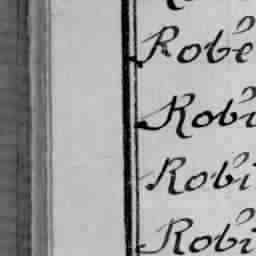 Robe
Robi
Robi
Robi